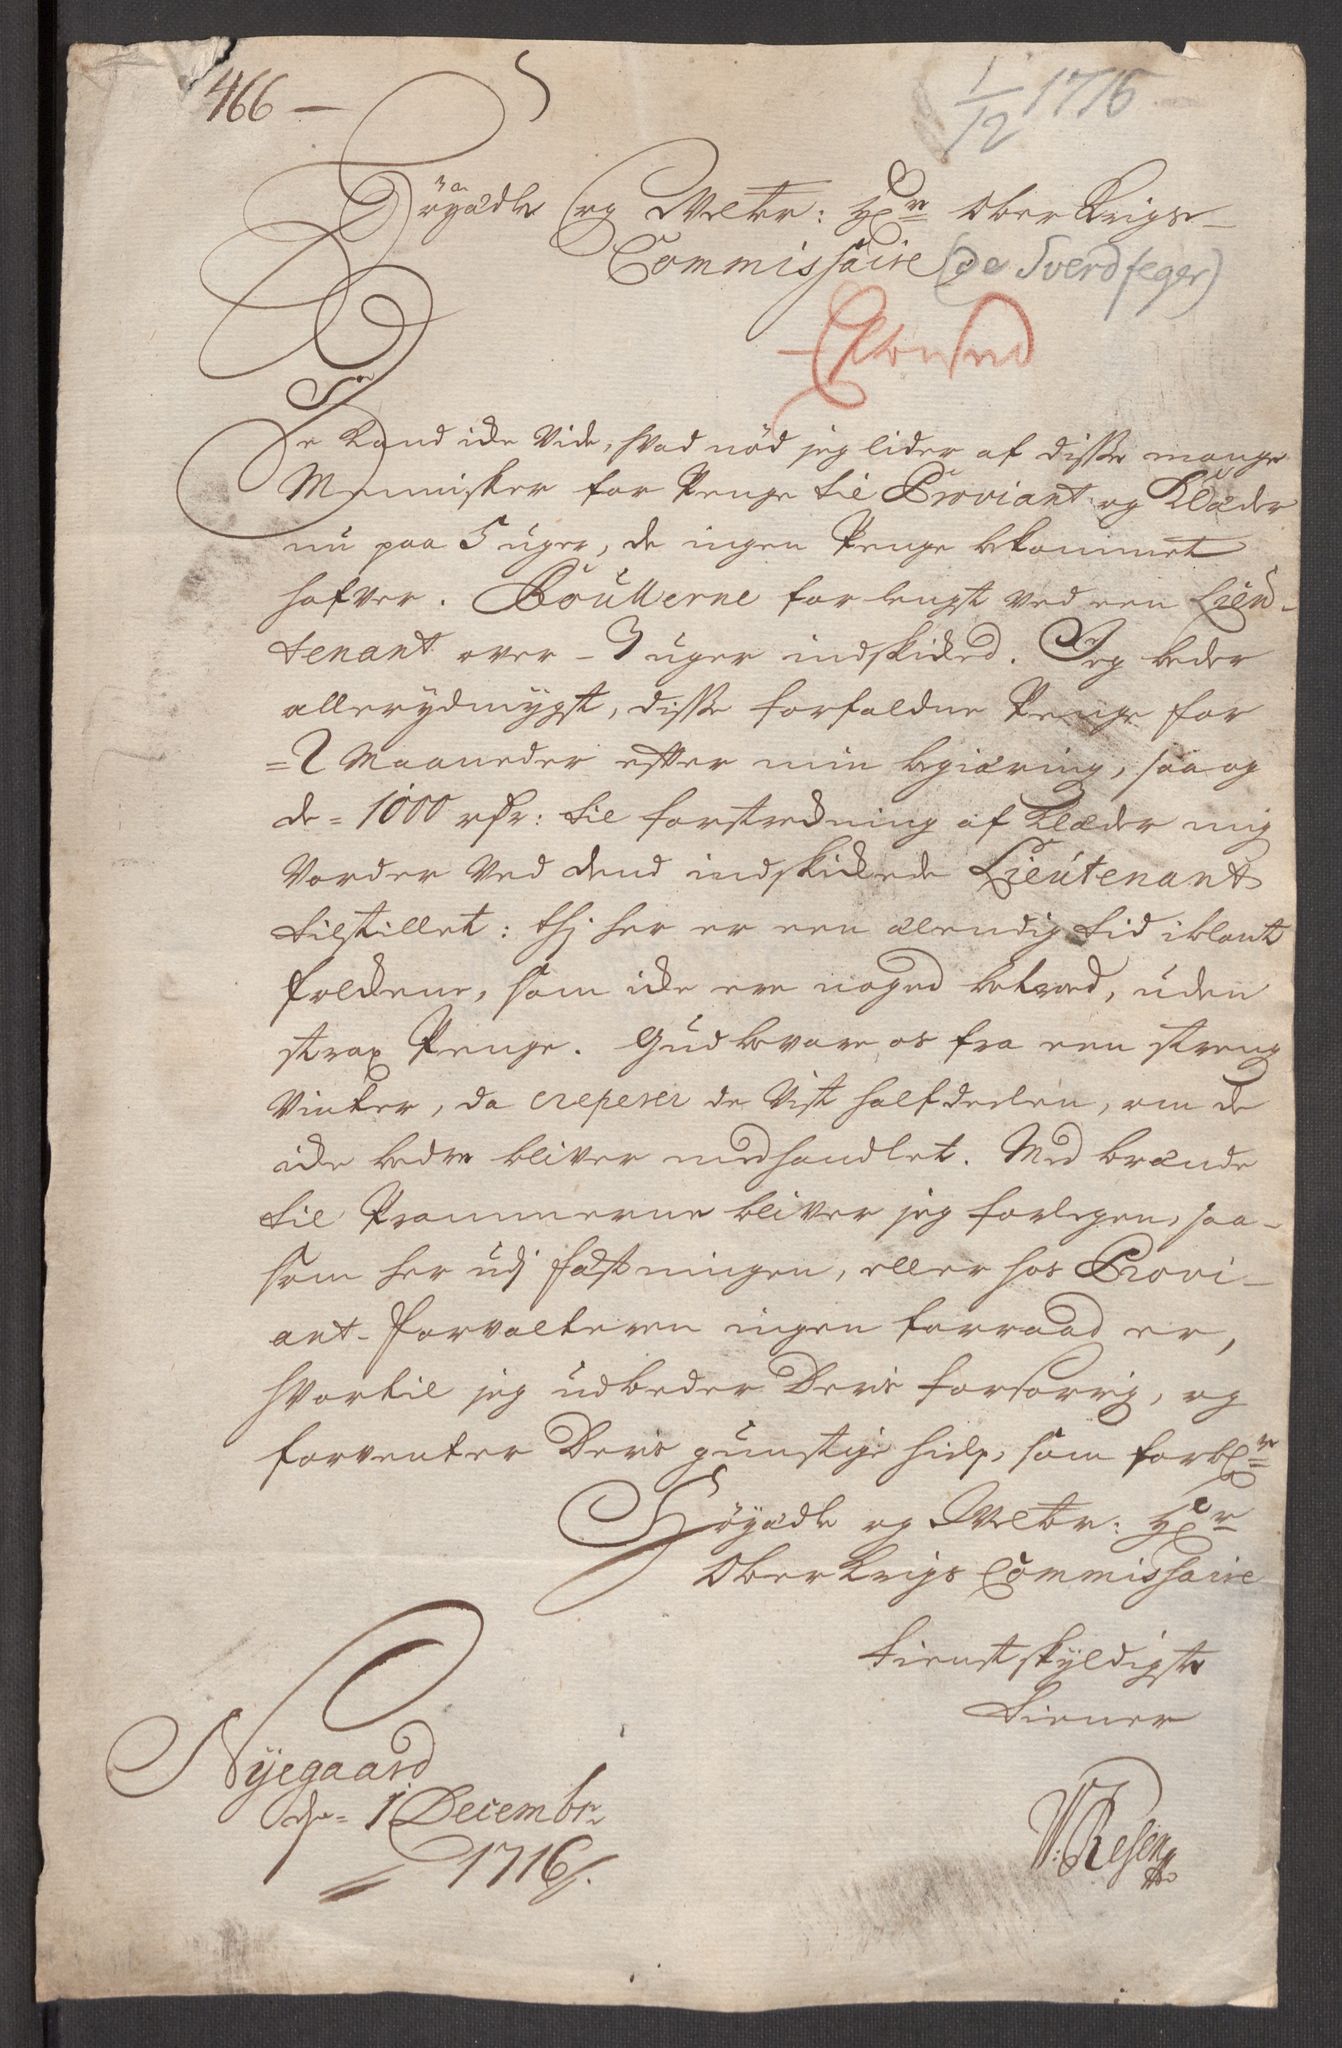 466 —
1/12 1716
Höyædle og Velbr: Hr Ober Krigs-
Commissaire (de Sverdfeger)
De kand icke vide, hvad nöd jeg lider af disse mange
Mennisker for Penge til Proviant og Klæder
nu paa 5 uger, de ingen Penge bekommet
hafver. Roullerne for lengst ved een Lieu-
tenant over - 3 uger indskicked. Jeg beder
allerydmygst, disse forfaldne Penge for
= 2 Maaneder efter min begiæring, saa og
de = 1000 rdr: til forstreckning af Klæder mig
vorder ved dend indskickede Lieutenant
tilstillet: thj her er een elendig tid iblant
folckene, som icke ere noged betroed, uden
strax Penge. Gud bevare os fra een streng
Vinter, da creperer de vist halfdeelen, om de
icke bedre bliver medhandlet. Med brænde
til Prammerne bliver jeg forlegen, saa-
som her udj fæstningen, eller hos Provi-
ant-Forvalteren ingen forraad er,
hvortil jeg udbeder Deris forsorrig, og
forventer Deris gunstige hielp, som forblr
Höyædle og Velbr: Hr
Ober Krigs Commissaire
tienstskyldigste
tiener
Nyegaard
d = 1 Decembr
1716